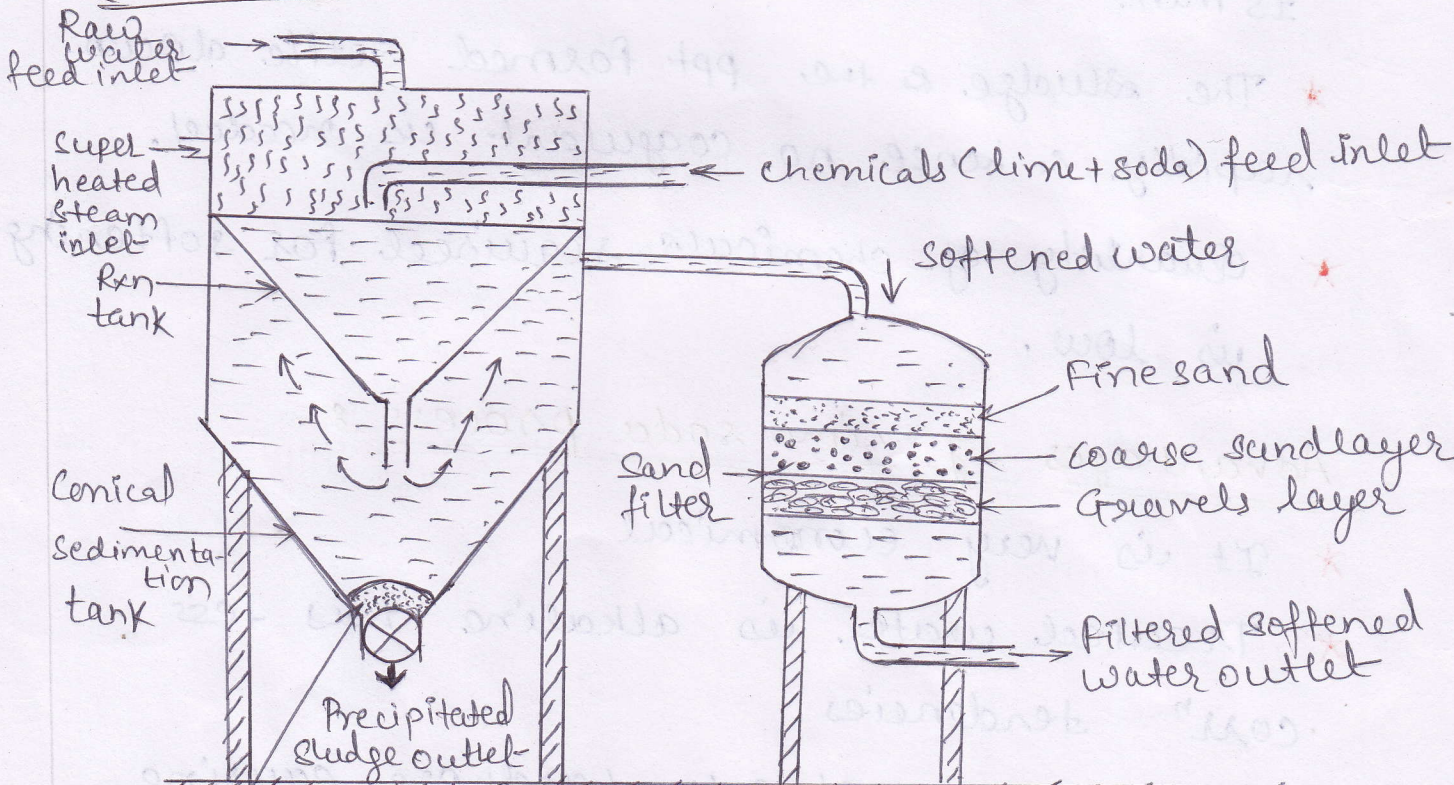 Raw
water
feed inlet
Super
heated
steam
inlet
Rxn
tank
Conical
Sedimenta-
tion
tank
Precipitated
sludge outlet
chemicals (lime + soda) feed inlet
softened water
Fine sand
coarse sand layer
Gravels layer
Sand
filter
Filtered softened
water outlet